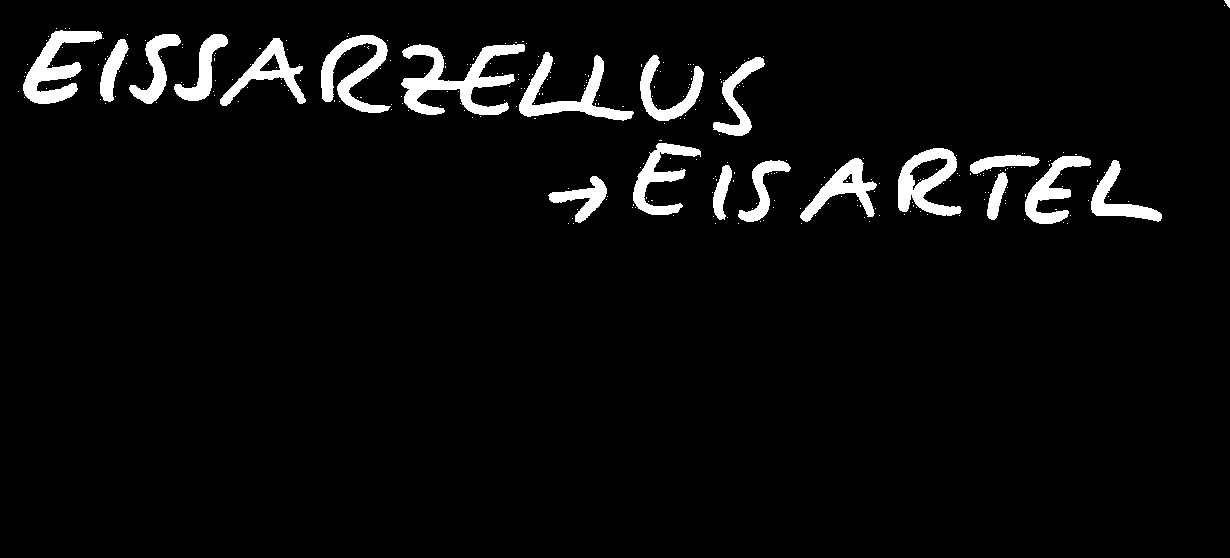 EISSARZELLUS
→ EISARTEL